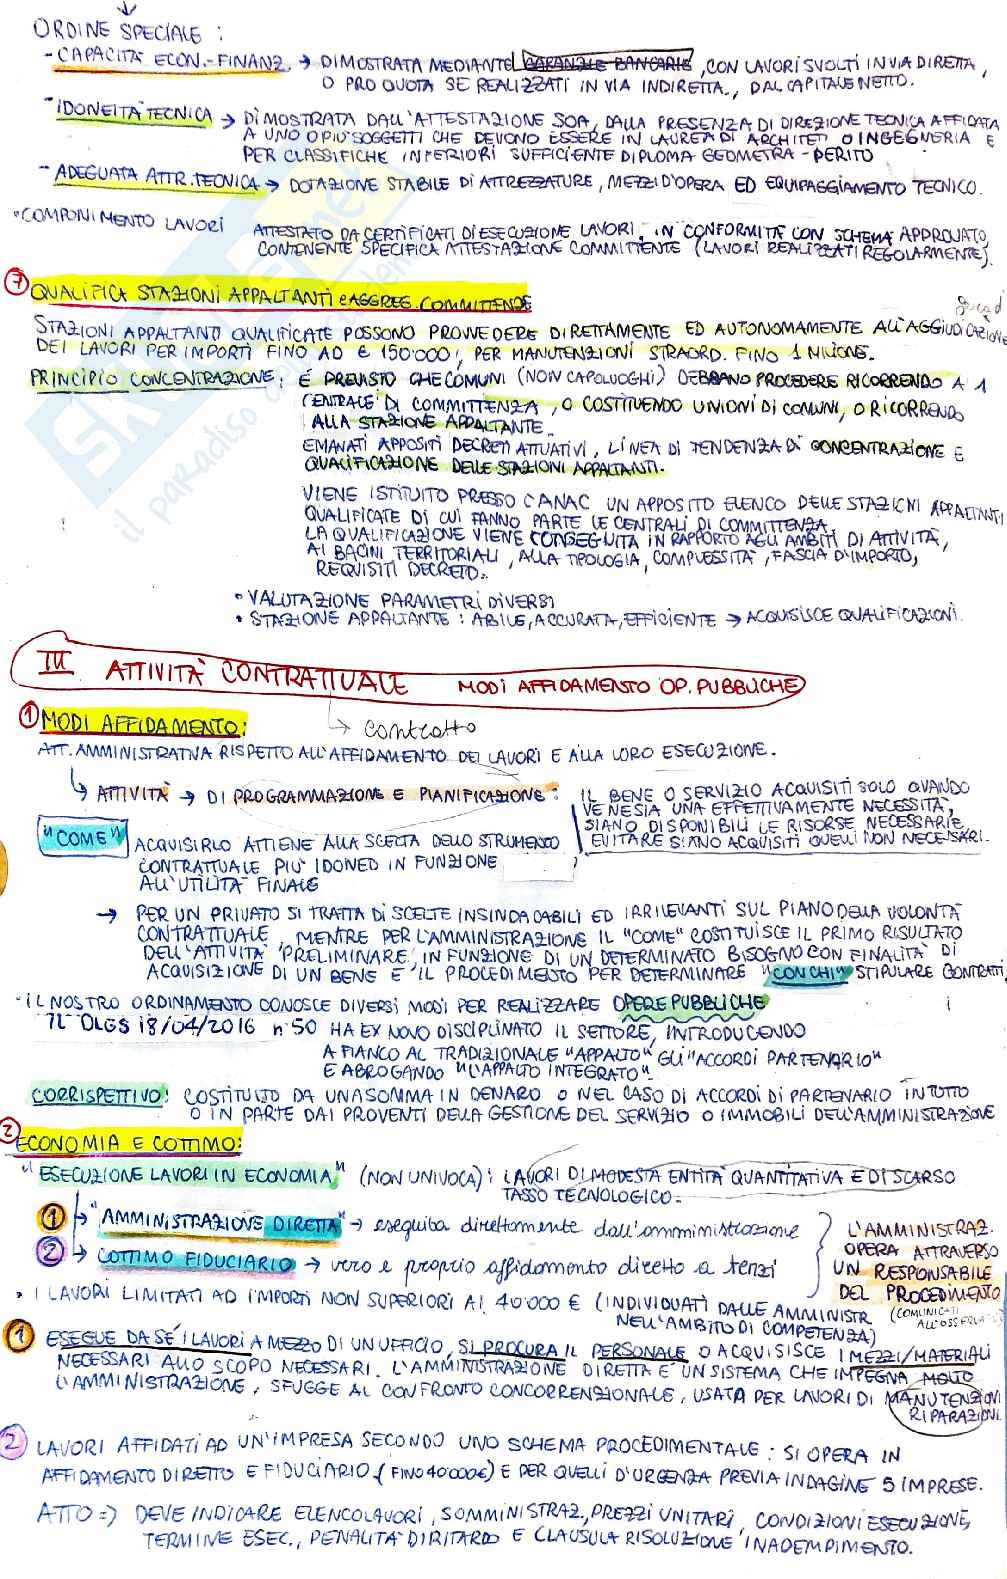 ORDINE SPECIALE :
- CAPACITÀ ECON.-FINANZ. → DIMOSTRATA MEDIANTE GARANZIE BANCARIE, CON LAVORI SVOLTI IN VIA DIRETTA,
O PRO QUOTA SE REALIZZATI IN VIA INDIRETTA., DAL CAPITALE NETTO.
- IDONEITÀ TECNICA → DIMOSTRATA DALL'ATTESTAZIONE SOA, DALLA PRESENZA DI DIREZIONE TECNICA AFFIDATA
A UNO O PIÙ SOGGETTI CHE DEVONO ESSERE IN LAUREA DI ARCHITET. O INGEGNERIA E
PER CLASSIFICHE INFERIORI SUFFICIENTE DIPLOMA GEOMETRA - PERITO
- ADEGUATA ATTR. TECNICA → DOTAZIONE STABILE DI ATTREZZATURE, MEZZI D'OPERA ED EQUIPAGGIAMENTO TECNICO.
• COMPONIMENTO LAVORI ATTESTATO DA CERTIFICATI DI ESECUZIONE LAVORI, IN CONFORMITÀ CON SCHEMA APPROVATO,
CONTENENTE SPECIFICA ATTESTAZIONE COMMITTENTE (LAVORI REALIZZATI REGOLARMENTE).
7 QUALIFICA STAZIONI APPALTANTI e AGGREG. COMMITTENZE
STAZIONI APPALTANTI QUALIFICATE POSSONO PROVVEDERE DIRETTAMENTE ED AUTONOMAMENTE ALL'AGGIUDICAZIONE
DEI LAVORI PER IMPORTI FINO AD € 150'000, PER MANUTENZIONI STRAORD. FINO 1 MILIONE.
PRINCIPIO CONCENTRAZIONE: È PREVISTO CHE COMUNI (NON CAPOLUOGHI) DEBBANO PROCEDERE RICORRENDO A 1
CENTRALE DI COMMITTENZA, O COSTITUENDO UNIONI DI COMUNI, O RICORRENDO
ALLA STAZIONE APPALTANTE.
EMANATI APPOSITI DECRETI ATTUATIVI, LINEA DI TENDENZA DI CONCENTRAZIONE E
QUALIFICAZIONE DELLE STAZIONI APPALTANTI.
VIENE ISTITUITO PRESSO L'ANAC UN APPOSITO ELENCO DELLE STAZIONI APPALTANTI
QUALIFICATE DI CUI FANNO PARTE LE CENTRALI DI COMMITTENZA.
LA QUALIFICAZIONE VIENE CONSEGUITA IN RAPPORTO AGLI AMBITI DI ATTIVITÀ,
AI BACINI TERRITORIALI, ALLA TIPOLOGIA, COMPLESSITÀ, FASCIA D'IMPORTO,
REQUISITI DECRETO.
• VALUTAZIONE PARAMETRI DIVERSI
• STAZIONE APPALTANTE : ABILE, ACCURATA, EFFICIENTE → ACQUISISCE QUALIFICAZIONI.
III ATTIVITÀ CONTRATTUALE MODI AFFIDAMENTO OP. PUBBLICHE
1 MODI AFFIDAMENTO: ↳ contratto
ATT. AMMINISTRATIVA RISPETTO ALL'AFFIDAMENTO DEI LAVORI E ALLA LORO ESECUZIONE.
↳ ATTIVITÀ → DI PROGRAMMAZIONE E PIANIFICAZIONE: IL BENE O SERVIZIO ACQUISITI SOLO QUANDO
VE NE SIA UNA EFFETTIVAMENTE NECESSITÀ,
SIANO DISPONIBILI LE RISORSE NECESSARIE,
EVITARE SIANO ACQUISITI QUELLI NON NECESSARI.
"COME" ACQUISIRLO ATTIENE ALLA SCELTA DELLO STRUMENTO
CONTRATTUALE PIÙ IDONEO IN FUNZIONE
ALL'UTILITÀ FINALE
→ PER UN PRIVATO SI TRATTA DI SCELTE INSINDACABILI ED IRRILEVANTI SUL PIANO DELLA VOLONTÀ
CONTRATTUALE, MENTRE PER L'AMMINISTRAZIONE IL "COME" COSTITUISCE IL PRIMO RISULTATO
DELL'ATTIVITÀ 'PRELIMINARE' IN FUNZIONE DI UN DETERMINATO BISOGNO CON FINALITÀ DI
ACQUISIZIONE DI UN BENE E IL PROCEDIMENTO PER DETERMINARE "CON CHI" STIPULARE CONTRATTI
• IL NOSTRO ORDINAMENTO CONOSCE DIVERSI MODI PER REALIZZARE OPERE PUBBLICHE
IL DLGS 18/04/2016 n°50 HA EX NOVO DISCIPLINATO IL SETTORE, INTRODUCENDO
A FIANCO AL TRADIZIONALE "APPALTO" GLI "ACCORDI PARTENARIO"
E ABROGANDO "L'APPALTO INTEGRATO".
CORRISPETTIVO: COSTITUITO DA UNA SOMMA IN DENARO O NEL CASO DI ACCORDI DI PARTENARIO IN TUTTO
O IN PARTE DAI PROVENTI DELLA GESTIONE DEL SERVIZIO O IMMOBILI DELL'AMMINISTRAZIONE
2 ECONOMIA E COTTIMO:
"ESECUZIONE LAVORI IN ECONOMIA" (NON UNIVOCA): LAVORI DI MODESTA ENTITÀ QUANTITATIVA E DI SCARSO
TASSO TECNOLOGICO.
1 → "AMMINISTRAZIONE DIRETTA" → eseguita direttamente dall'amministrazione
2 → COTTIMO FIDUCIARIO → vero e proprio affidamento diretto a terzi
L'AMMINISTRAZ.
OPERA ATTRAVERSO
UN RESPONSABILE
DEL PROCEDIMENTO
(COMUNICATI
• I LAVORI LIMITATI AD IMPORTI NON SUPERIORI AI 40'000 € (INDIVIDUATI DALLE AMMINISTR
NELL'AMBITO DI COMPETENZA)
1 ESEGUE DA SÉ I LAVORI A MEZZO DI UN UFFICIO, SI PROCURA IL PERSONALE O ACQUISISCE I MEZZI/MATERIALI
NECESSARI ALLO SCOPO NECESSARI. L'AMMINISTRAZIONE DIRETTA È UN SISTEMA CHE IMPEGNA MOLTO
L'AMMINISTRAZIONE, SFUGGE AL CONFRONTO CONCORRENZIONALE, USATA PER LAVORI DI MANUTENZIONI
RIPARAZIONI.
2 LAVORI AFFIDATI AD UN'IMPRESA SECONDO UNO SCHEMA PROCEDIMENTALE : SI OPERA IN
AFFIDAMENTO DIRETTO E FIDUCIARIO, (FINO 40'000€) E PER QUELLI D'URGENZA PREVIA INDAGINE 5 IMPRESE.
ATTO => DEVE INDICARE ELENCO LAVORI, SOMMINISTRAZ., PREZZI UNITARI, CONDIZIONI ESECUZIONE,
TERMINE ESEC., PENALITÀ DI RITARDO E CLAUSULA RISOLUZIONE INADEMPIMENTO.